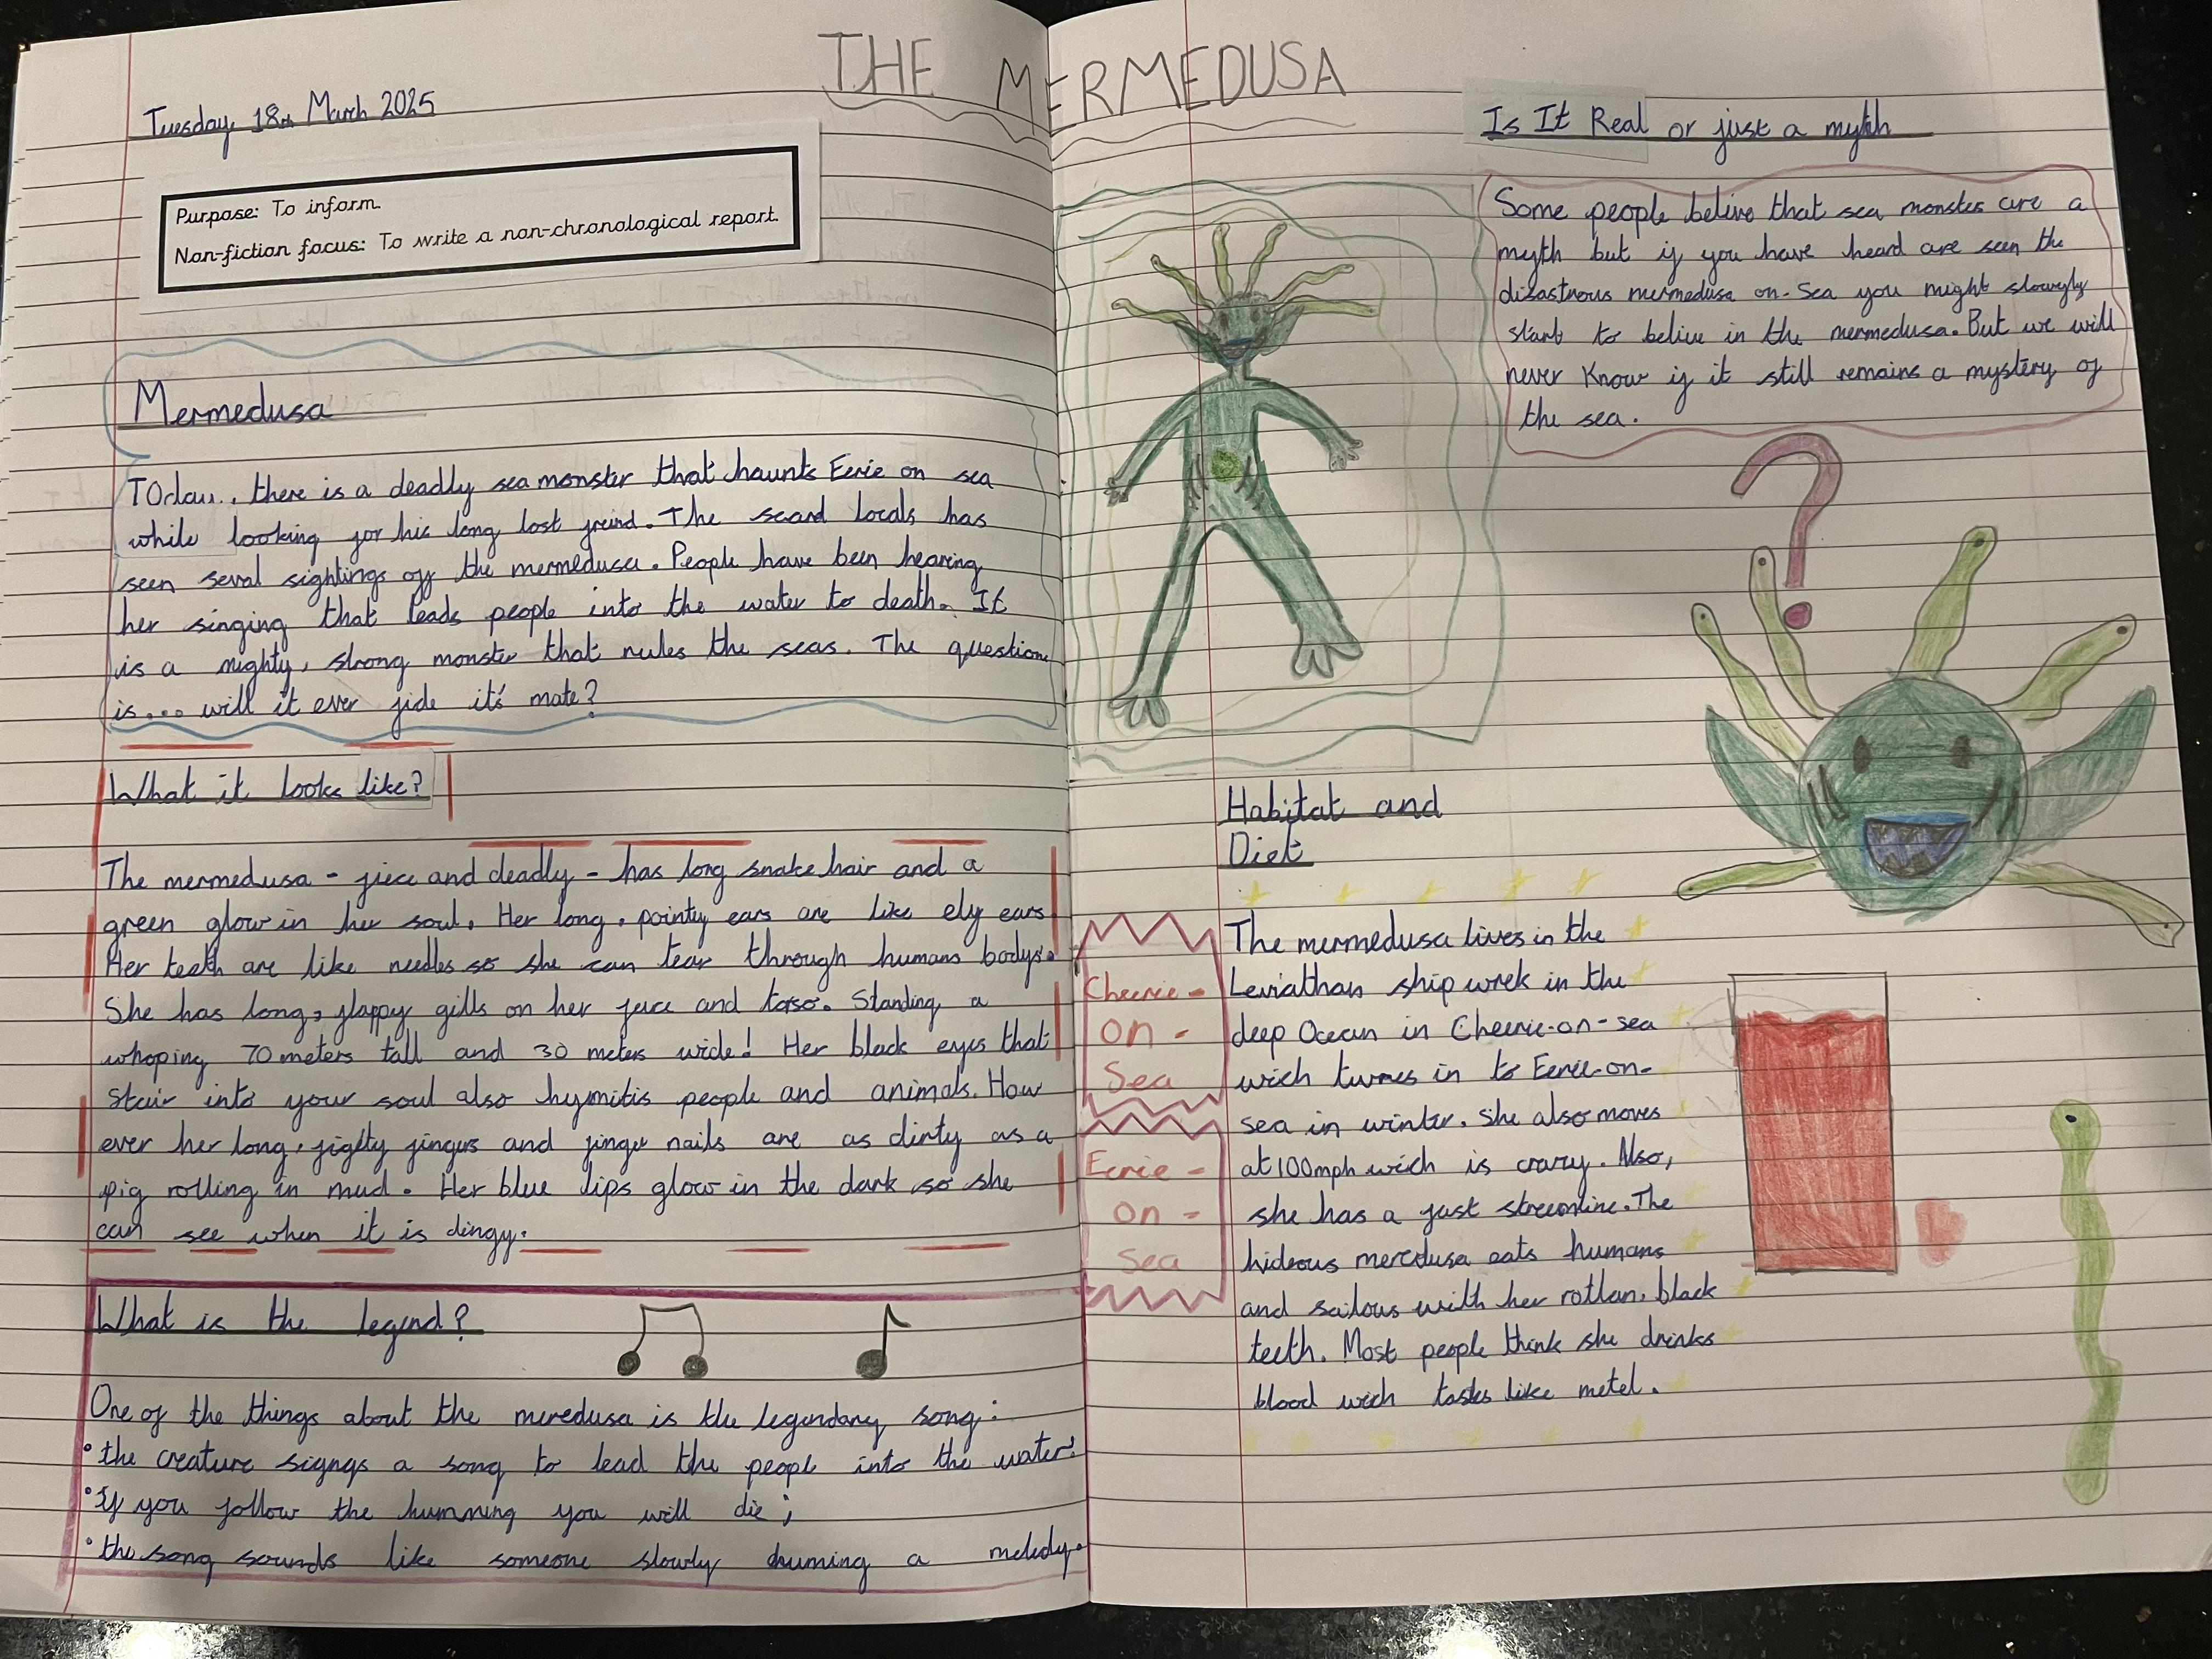 THE MERMEDUSA
Tuesday 18th March 2025
Purpose: To inform.
Non-fiction focus: To write a non-chronological report.
Mermedusa
TOday., there is a deadly sea monster that haunts Eerie on sea
while looking for his long lost freind. The scard locals has
seen seval sightings off the mermedusa. People have been hearing
her singing that leads people into the water to death. It
is a mighty, strong monster that rules the seas. The question
is... will it ever fide it's mate?
What it looks like?
The mermedusa - fiece and deadly - has long snake hair and a
green glow in her soul. Her long, pointy ears are like elf ears.
Her teeth are like needles so she can tear through humans bodys.
She has long, flappy gills on her face and torso. Standing a
whoping 70 meters tall and 30 meters wide! Her black eyes that
stair into your soul also hymitis people and animals. How
ever her long, figlty fingers and finger nails are as dirty as a
pig rolling in mud. Her blue lips glow in the dark so she
can see when it is dingy.
What is the legend?
One of the things about the meredusa is the legendary song:
• the creature signgs a song to lead the peopl into the water;
• If you follow the humming you will die;
• the song sounds like someone slowly huming a melody.
Is It Real or just a myth
Some people belive that sea monster are a
myth but if you have heard are seen the
disastrous mermedusa on-Sea you might slowgly
start to belive in the mermedusa. But we will
never Know if it still remains a mystery of
the sea.
?
Habitat and
Diet
Cheerie-
on-
Sea
Eerie-
on-
Sea
The mermedusa lives in the
Leviathan ship wrek in the
deep Ocean in Cheerie-on-sea
wich turnes in to Eerie-on-
sea in winter. She also moves
at 100mph wich is crazy. Also,
she has a fast streemline. The
hideous meredusa eats humans
and sailous with her rotlan, black
teeth. Most people think she drinks
blood wich tastes like metel.